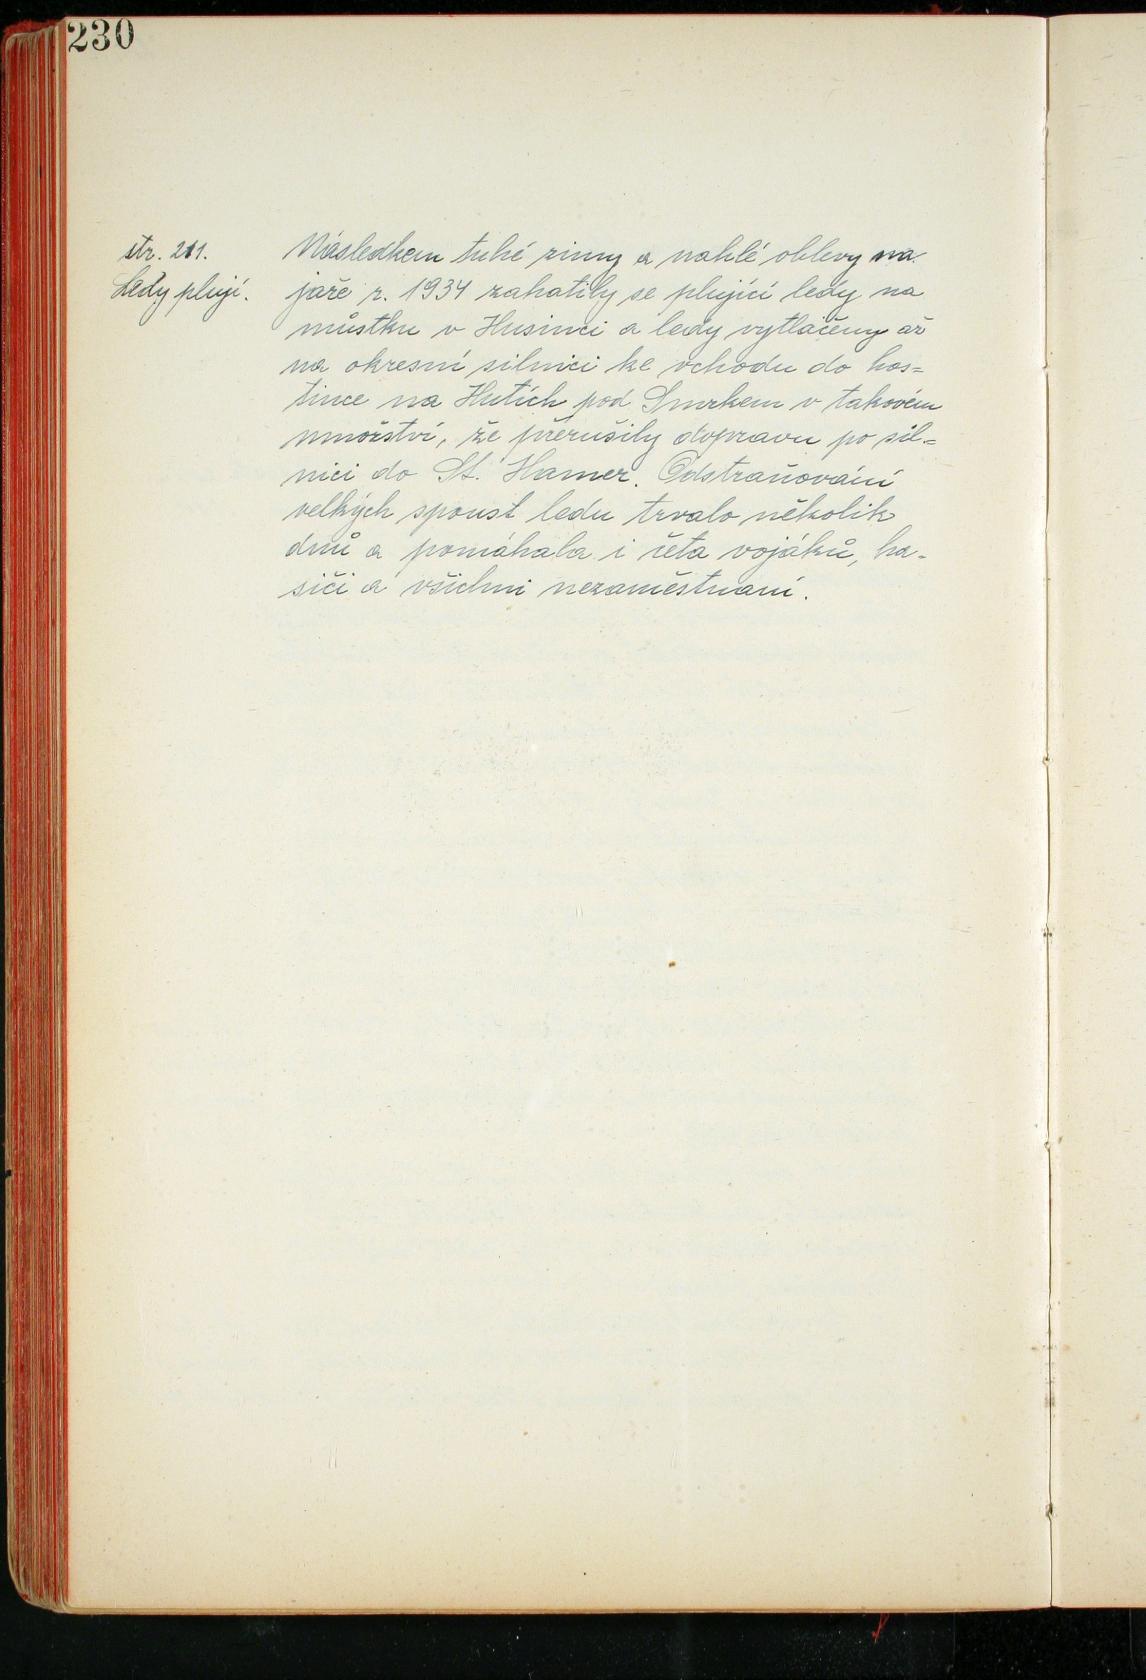 230
str. 211.
Ledy plují.
Následkem tuhé zimy a nahlé oblevy na
jaře r. 1934 zahatily se plující ledy na
můstku v Husinci a ledy vytlačeny až
na okresní silnici ke vchodu do hos=
tince na Hutích pod Smrkem v takovém
množství, že přerušily dopravu po sil=
nici do St. Hamer. Odstraňování
velkých spoust ledu trvalo několik
dnů a pomáhala i četa vojáků, ha-
siči a všichni nezaměstnaní.